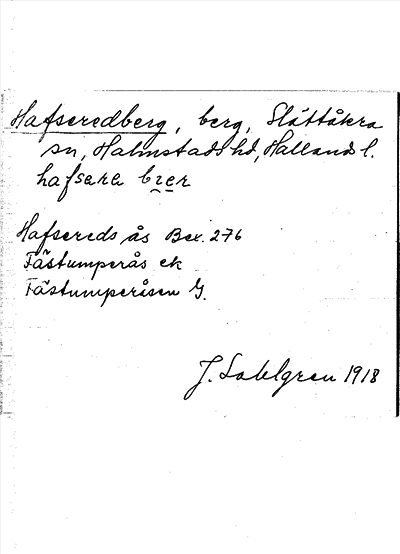 Hafseredberg, berg, Slättåkra
sn, Halmstads hd, Hallands l.
hafsara brer
Hafsereds ås Bex. 276
Fästumperås ek
Fästumperåsen G.
J. Sahlgren 1918